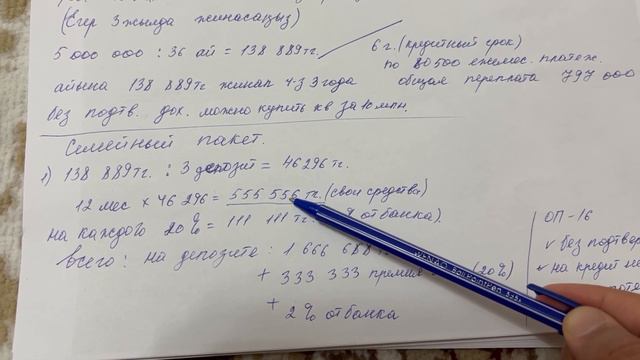 (Егер 3 жылда жинасаңыз)
5 000 000 : 36 ай = 138 889тг.
6 г. (кредитный срок)
по 80 500 ежемес. платеж.
айына 138 889тг жинап 4-з 3 года
общая переплата 797 000
без подтв. дох. можно купить кв за 10 млн.
Семейный пакет.
1) 138 889 тг. : 3 депозит = 46 296 тг.
12 мес × 46 296 = 555 556 тг. (свои средства)
на каждого 20% = 111 111 тг. % от банка).
Всего: на депозите: 1 666 688
+ 333 333 премия (20%)
+ 2% от банка
ОП-16
✓ без подтвер
✓ на кредит не